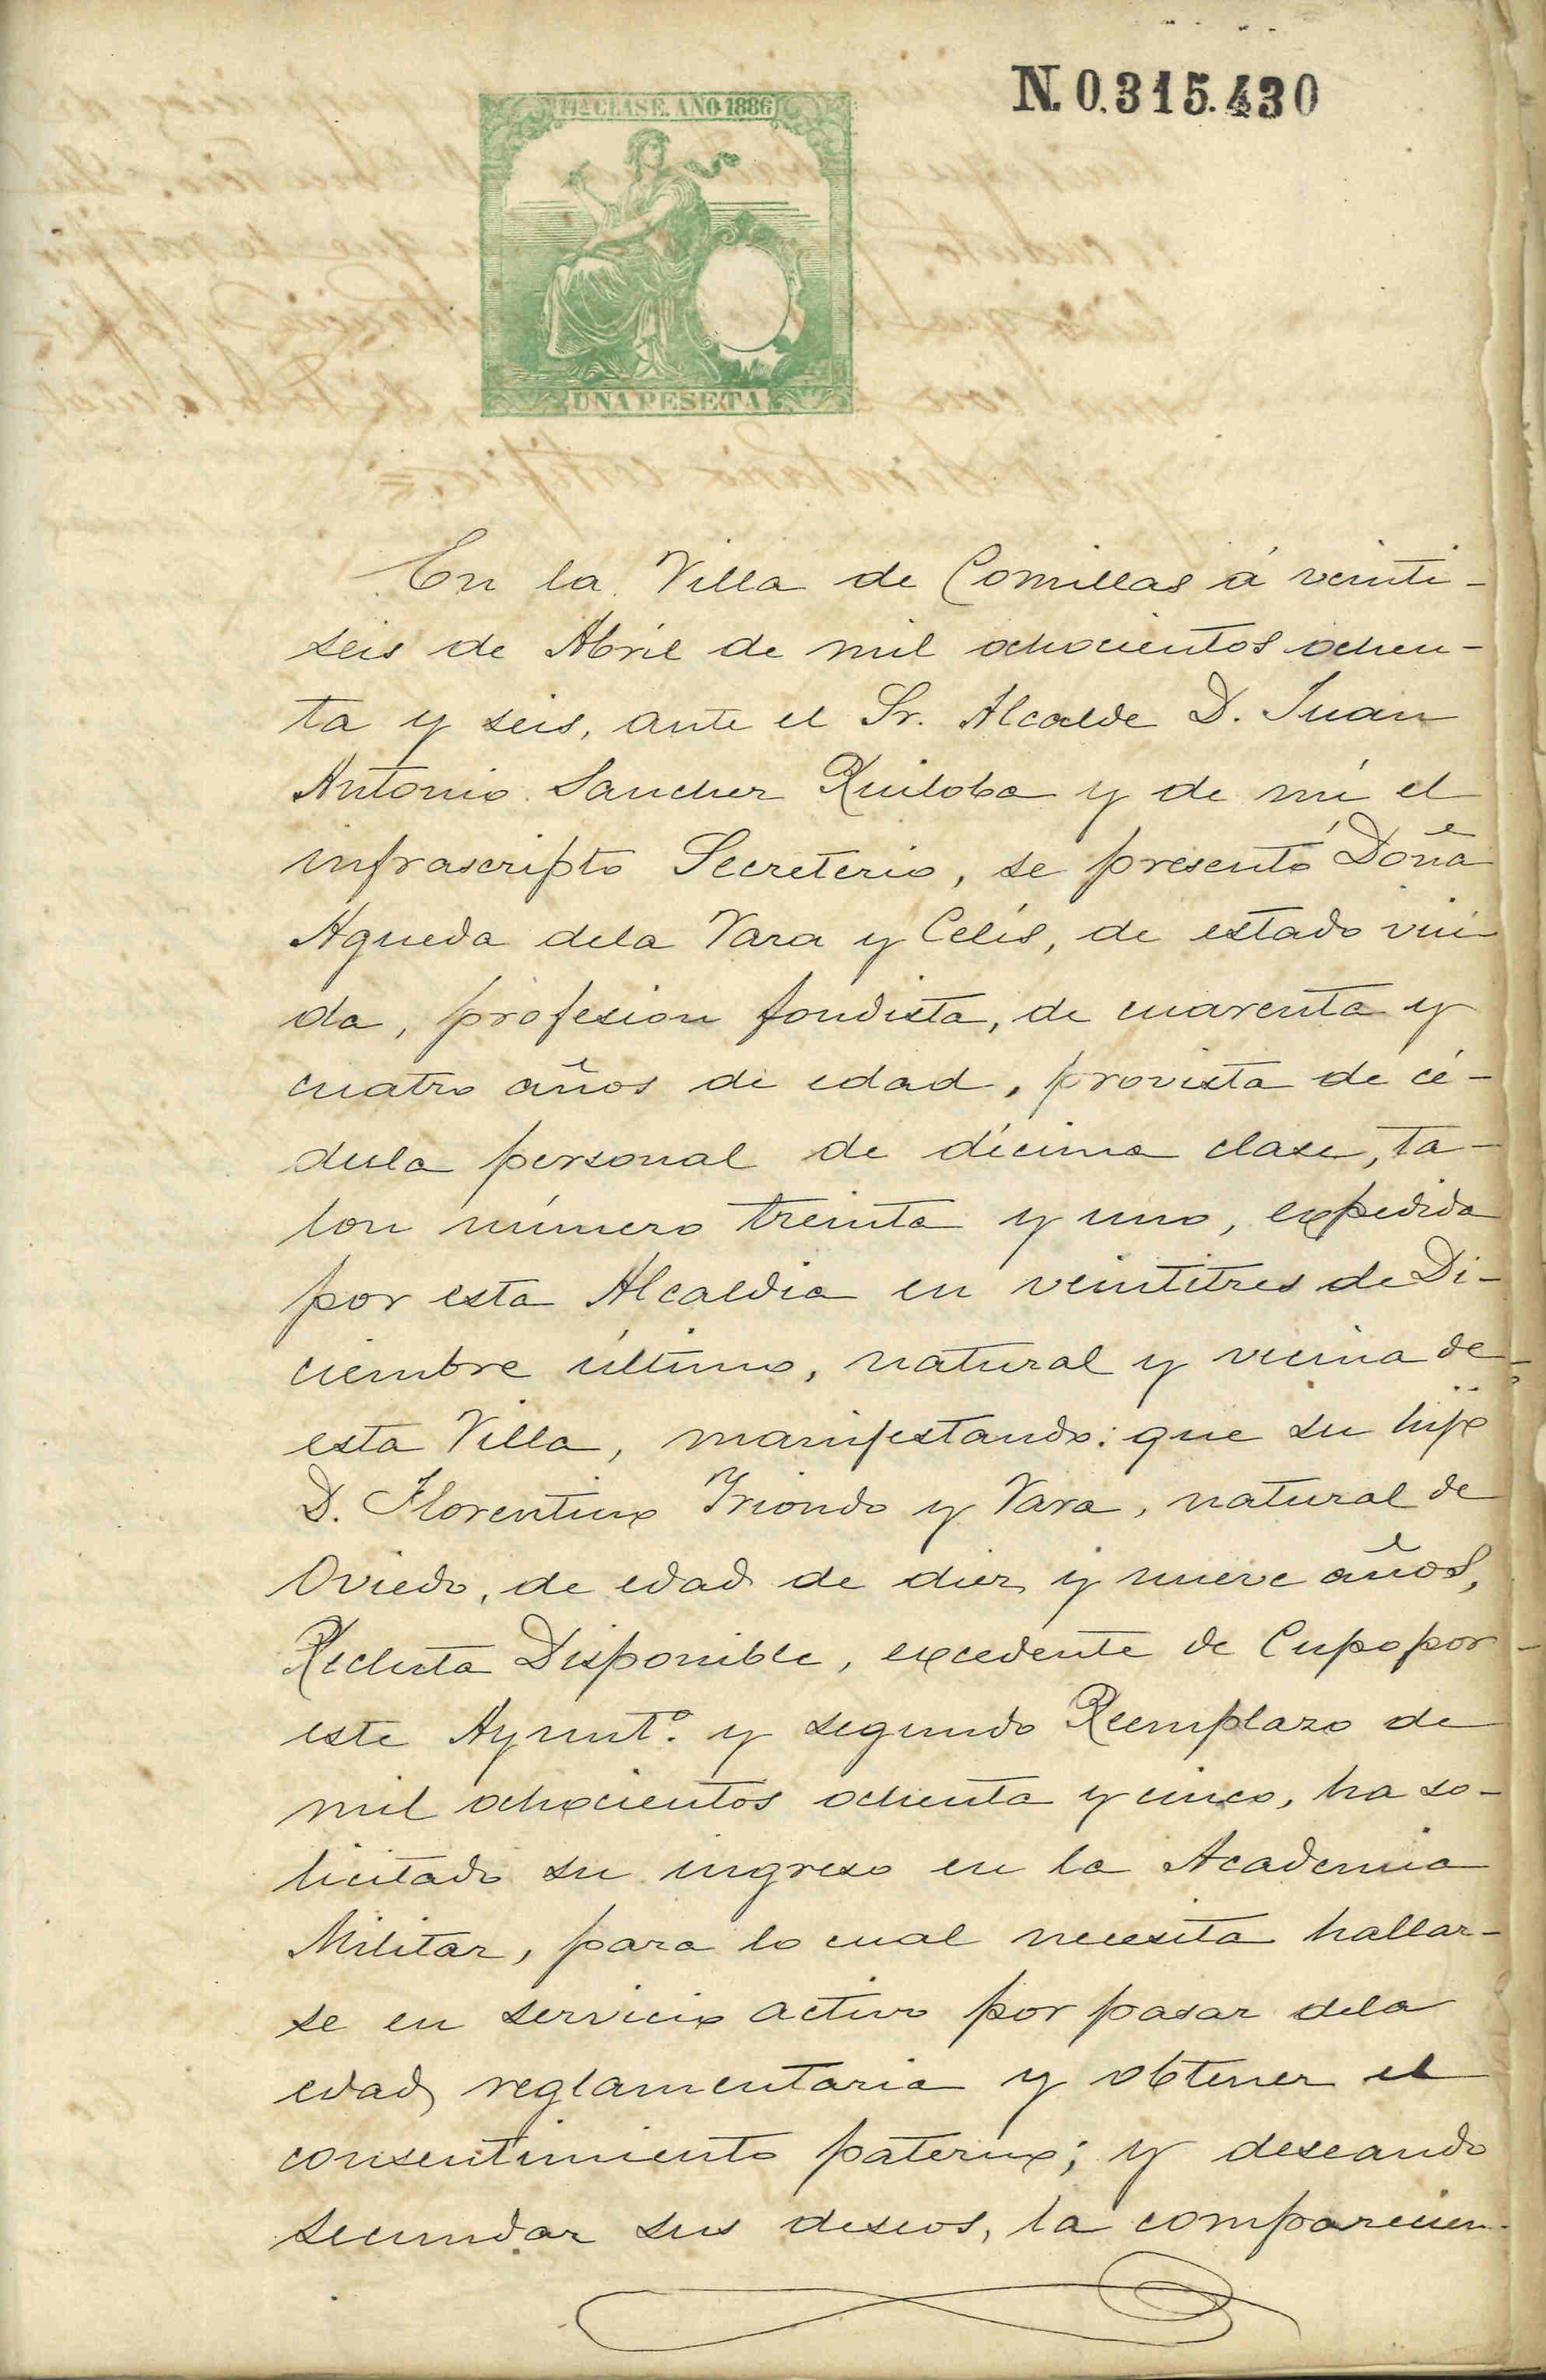 N.0.315.430
11ª CLASE. AÑO 1886
UNA PESETA
En la Villa de Comillas á veinti-
seis de Abril de mil ochocientos ochen-
ta y seis, ante el Sr. Alcalde D. Juan
Antonio Sanchez Ruiloba y de mí el
infrascripto Secreterio, se presentó Doña
Agueda dela Vara y Celís, de estado viu-
da, profesion fondista, de cuarenta y
cuatro años de edad, provista de cé-
dula personal de décima clase, ta-
lon número treinta y uno, expedida
por esta Alcaldia en veintitres de Di-
ciembre último, natural y vecina de
esta Villa, manifestando: que su hijo
D. Florentino Yriondo y Vara, natural de
Oviedo, de edad de diez y nueve años,
Recluta Disponible, excedente de Cupo por
este Ayuntº. y segundo Reemplazo de
mil ochocientos ochenta y cinco, ha so-
licitado su ingreso en la Academia
Militar, para lo cual necesita hallar-
se en servicio activo por pasar dela
edad reglamentaria y obtener el
consentimiento paterno; y deseando
secundar sus deseos, la comparecien-